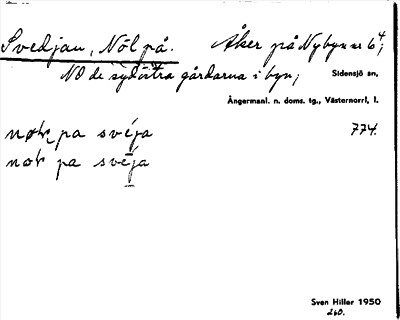 Svedjan, Nöl på. Åker på Nybyn nr 6⁴;
NO de sydöstra gårdarna i byn; Sidensjö sn,
Ångermanl. n. doms. tg., Västernorrl. l.
pa svéja 774.
pa svéja
Sven Hiller 1950
260.